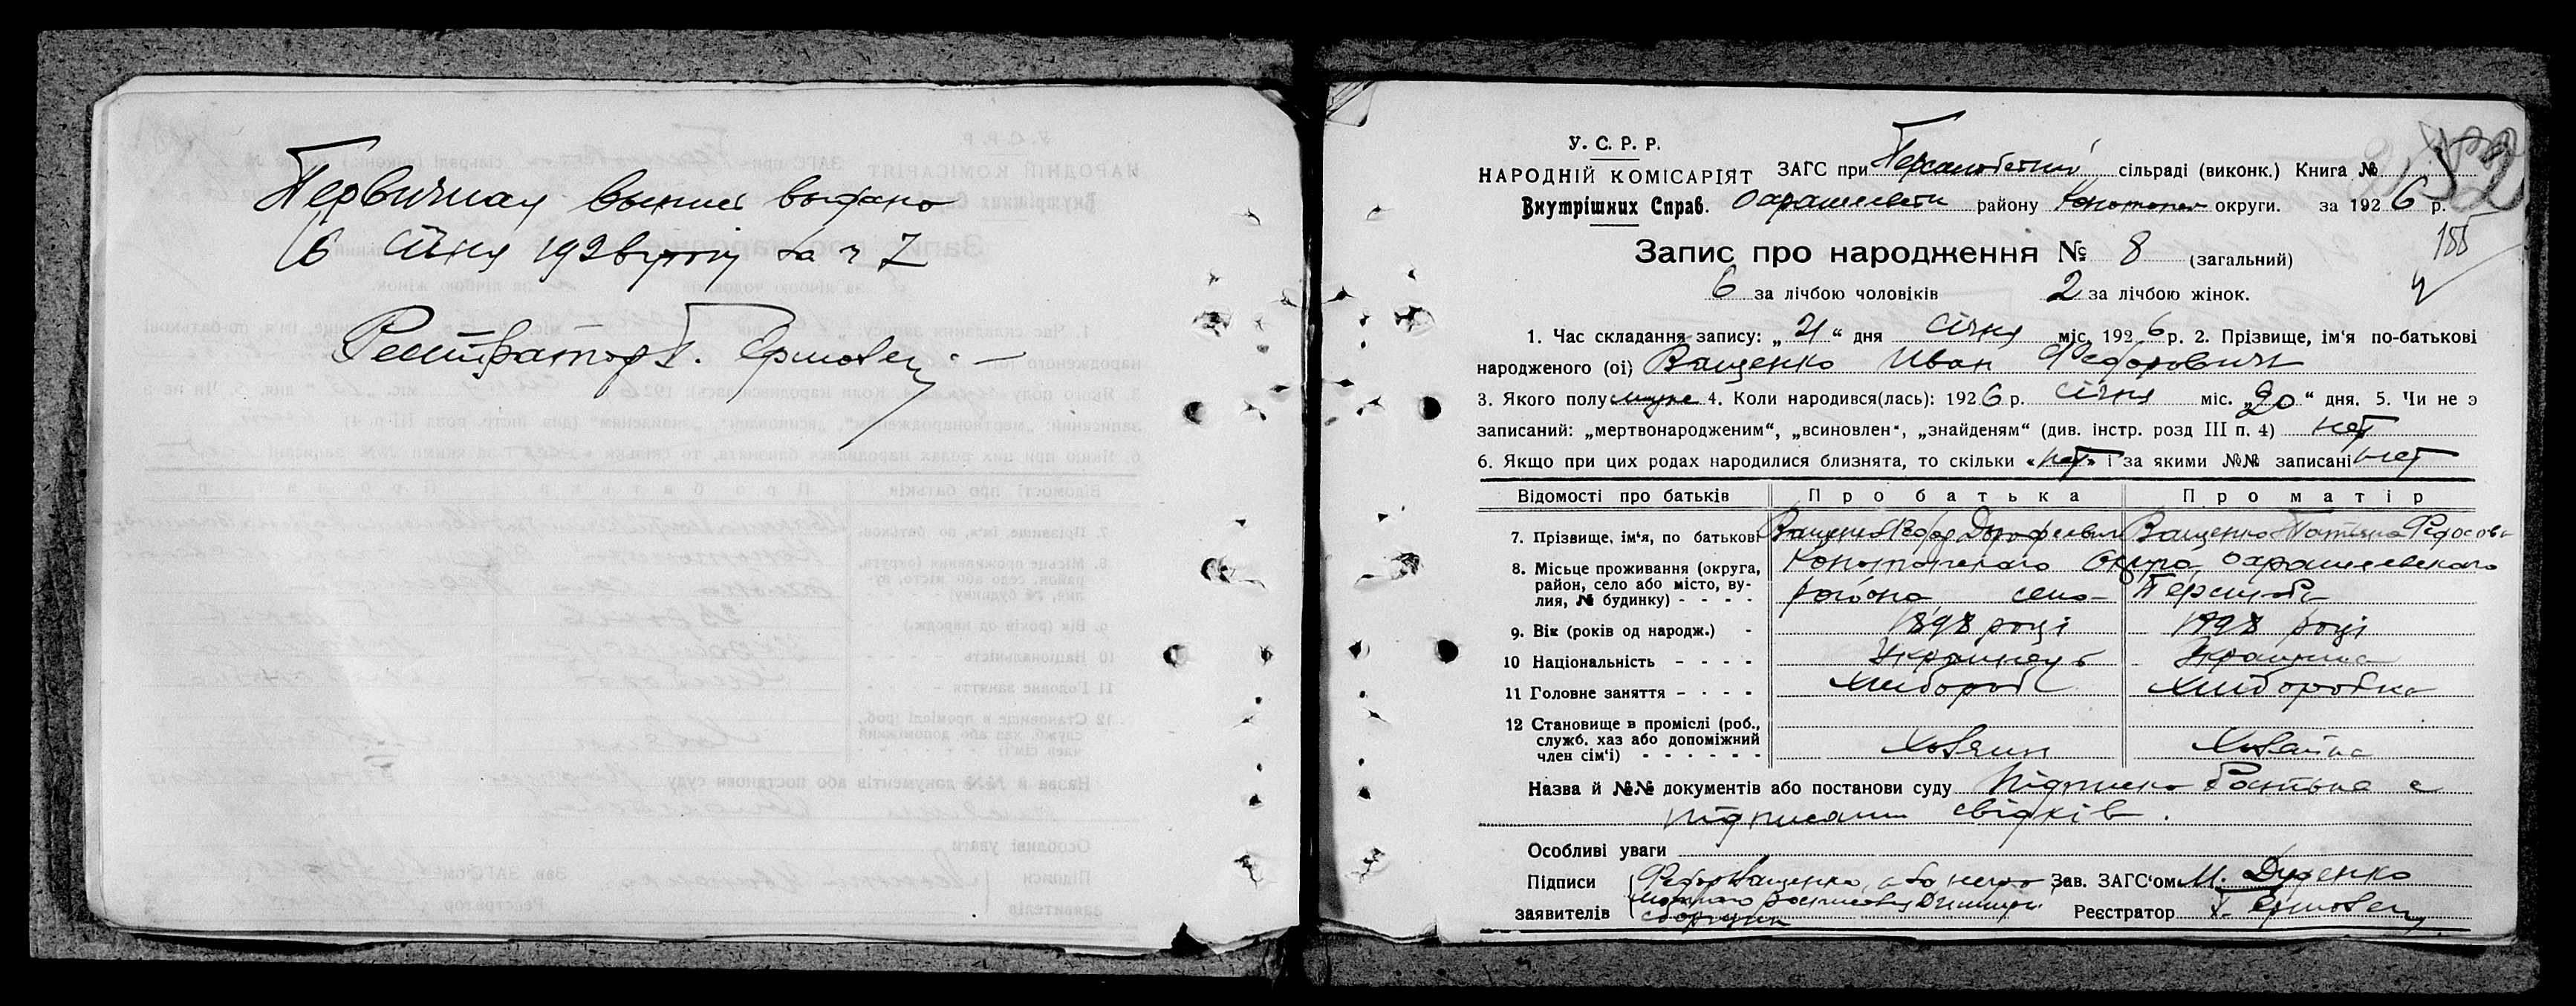 Первичная выпись выдано
16 січня 1926 року за № 7
Реєстратор
У. С. Р. Р.
НАРОДНІЙ КОМІСАРІЯТ
Внутрішних Справ.
ЗАГС при сільраді (виконк.) Книга №
району Конотоп округи. за 1926 р.
155
Запис про народження № 8 (загальний)
6 за лічбою чоловіків 2 за лічбою жінок.
1. Час складання запису: „21“ дня Січня міс. 1926 р. 2. Прізвище, ім'я по-батькові
народженого (оі) Ващенко Иван Федорович
3. Якого полу муже 4. Коли народився(лась): 1926 р. Січня міс. „20“ дня. 5. Чи не э
записаний: „мертвонародженим“, „всиновлен“, „знайденям“ (див. інстр. розд III п. 4) нет
6. Якщо при цих родах народилися близнята, то скільки «нет» і за якими №№ записані нет
Відомості про батьків Про батька Про матір
7. Прізвище, ім'я, по батькові Ващенко Федор Дорофеевич Ващенко Татьяна Федосовн
8. Місьце проживання (округа, район, село або місто, вулия, № будинку) - - - - Конотопского округа,
района село
9. Вік (років од народж.) - 1898 році 1898 році
10 Національність - - - - Украинець Украинка
11 Головне заняття - - - - Хлибороб Хлиборобка
12 Становище в проміслі (роб., служб. хаз або допоміжний член сім'ї) - - - - - - Хозяин Хозайка
Назва й №№ документів або постанови суду Підписка батька с
підписами свідків.
Особливі уваги
Підписи заявителів Федор Ващенко, а за него
Зав. ЗАГС'ом М. Дуденко
Реєстратор